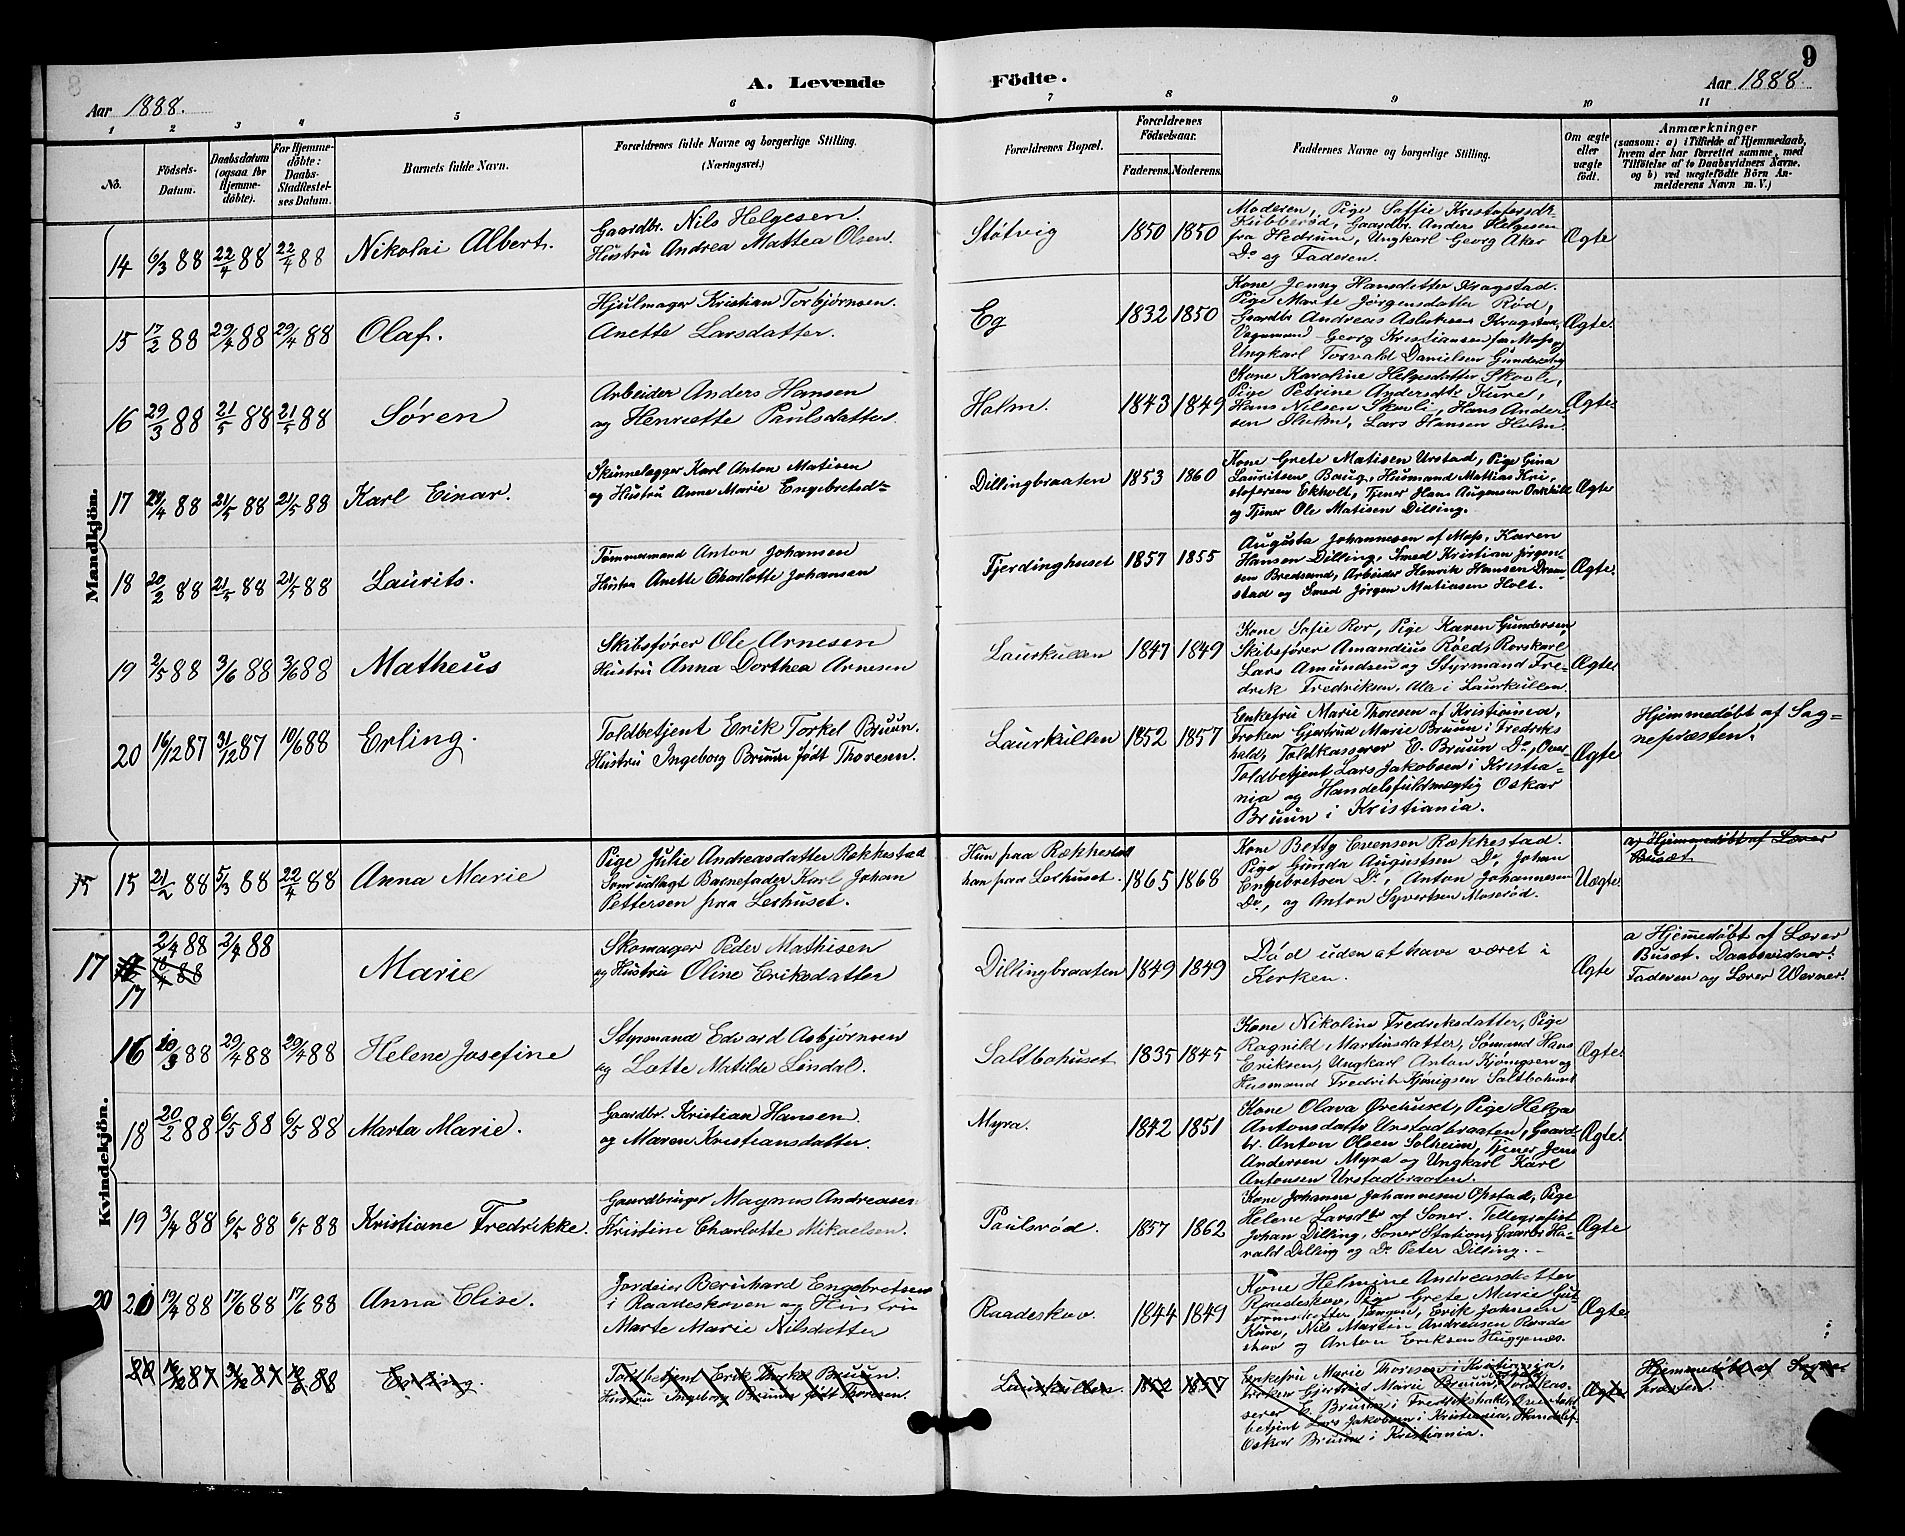 8
9
A. Levende Födte.
Aar 1888.
Aar 1888.
1 2 3 4 5 6 7 8 9 10 11
No.
Födsels-Datum.
Daabsdatum (ogsaa for Hjemme-döbte).
For Hjemme-döbte: Daabs-Stadfæstel-ses Datum.
Barnets fulde Navn.
Forældrenes fulde Navne og borgerlige Stilling.
(Næringsvei.)
Forældrenes Bopæl.
Forældrenes Födselsaar.
Faderens. Moderens.
Faddernes Navne og borgerlige Stilling.
Om ægte eller uægte födt.
Anmærkninger
(saasom: a) i Tilfælde af Hjemmedaab,
hvem der har forrettet samme, med
Tilföielse af to Daabsvidners Navne,
og b) ved uægtefödte Börn An-
melderens Navn m. V.)
Mandkjön.
14 6/3 88 22/4 88 22/4 88 Nikolai Albert.
Gaardbr. Nils Helgesen.
Hustru Andrea Mattea Olsen.
Støtvig 1850 1850
Moderen, Pige Soffie Kristofersdr
Kubberød, Gaardbr. Anders Helgesen
fra Hedrum, Ungkarl Georg Aker
Do og Faderen.
Ægte
15 17/2 88 29/4 88 29/4 88 Olaf.
Hjulmager Kristian Torbjørnsen.
Anette Larsdatter.
Eg 1832 1850
Kone Jenny Hansdatter Kragstad.
Pige Marte Jörgensdatter Rød,
Gaardbr Andreas Aslaksen Kragstad,
Vognmand Georg Kristiansen fra Moss og
Ungkarl Torvald Danielsen
Ægte.
16 29/3 88 21/5 88 21/5 88 Søren
Arbeider Anders Hansen
og Henriette Paulsdatter.
Holm. 1843 1849
Kone Karoline Helgesdatter Skovli,
Pige Petrine Andersdt. Kure,
Hans Nilsen Skovli, Hans Ander
sen Holm, Lars Hansen Holm.
Ægte.
17 29/4 88 21/5 88 21/5 88 Karl Einar.
Skinnelægger Karl Anton Matisen
og Hustru Anne Marie Engebretsd=
Dillingbraaten 1853 1860
Kone Grete Matisen Urstad, Pige Gina
Lauritsen, Baug, Husmand Mathias Kri,
stofersen Ekholt, Tjener Hans Augensen
og Tjener Ole Matisen Dilling.
Ægte
18 20/2 88 21/5 88 21/5 88 Laurits.
Tømmermand Anton Johansen
Hustru Anette Charlotte Johansen
Fjerdinghuset 1857 1855
Augusta Johannesen af Moss, Karen
Hansen Dilling, Smed Kristian Jørgen-
sen Bredsand, Arbeider Henrik Hansen Dram-
stad og Smed Jørgen Matiasen Holt.
Ægte.
19 2/5 88 3/6 88 3/6 88 Matheus
Skibsfører Ole Arnesen
Hustru Anna Dorthea Arnesen
Laurkullen 1847 1849
Kone Sofie Ror, Pige Karen Gundersen,
Skibsfører Amandius Røed, Rorskarl
Lars Amundsen og Styrmand Fre-
drik Fredriksen, Alle i Laurkullen.
Ægte.
20 16/12 87 31/12 87 10/6 88 Erling.
Toldbetjent Erik Torkel Bruun.
Hustru Ingeborg Bruun født Thoresen.
Laurkullen 1852 1857
Enkefru Marie Thoresen af Kristiania,
Frøken Gjertrud Marie Bruun i Fredriks
hald, Toldkasserer E. Bruun Do, Over
Toldbetjent Lars Jakobsen i Kristia-
nia og Handelsfuldmægtig Oskar
Bruun i Kristiania.
Ægte
Hjemmedøbt af Sog=
nepræsten.
Kvindekjön.
15 15 21/2 88 5/3 88 22/4 88 Anna Marie
Pige Julie Andreasdatter Rækkestad
Som udlagt Barnefader Karl Johan
Pettersen paa Lerhuset.
Hun paa Rækkestad
han paa Lerhuset. 1865 1868
Kone Betty Evensen Rækkestad.
Pige Gunda Augustsen Do Johan
Engebretsen Do, Anton Johannesen
Do, og Anton Syvertsen Moserød.
Uægte.
a) Hjemmedøbt af Lærer
Busæt.
17 17 2/4 88 2/4 88 Marie
Skomager Peder Mathisen
og Hustru Oline Eriksdatter
Dillingbraaten 1849 1849
Død uden at have været i
Kirken.
Ægte
a Hjemmedøbt af Lærer
Busæt. Daabsvidner:
Faderen og Lærer Werner.
16 10/3 88 29/4 88 29/4 88 Helene Josefine
Styrmand Edvard Asbjørnsen
og Lotte Matilde Lindal.
Saltbohuset 1835 1845
Kone Nikoline Fredriksdatter, Pige
Ragnild Martinsdatter, Sømand Hans
Eriksen, Ungkarl Anton Kjönigsen og
Husmand Fredrik Kjönigsen Saltbohuset
Ægte.
18 20/2 88 6/5 88 6/5 88 Marta Marie.
Gaardbr. Kristian Hansen.
og Maren Kristiansdatter.
Myra. 1842 1851
Kone Olava Ørehuset, Pige Helga
Antonsdatr Urstadbraaten, Gaard-
br. Anton Olsen Solheim, Tjener Jens
Andersen Myra og Ungkarl Karl
Antonsen Urstadbraaten.
Ægte.
19 3/4 88 6/5 88 6/5 88 Kristiane Fredrikke.
Gaardbruger Magnus Andreasen
Kristine Charlotte Mikaelsen.
Paulsrød. 1857 1862
Kone Johanne Johannesen Opstad, Pige
Helene Larsdtr af Soner. Telegrafist
Johan Dilling, Soner Station, Gaardbr Ha-
rald Dilling og Do Peter Dilling.
Ægte
20 20 19/4 88 17/6 88 17/6 88 Anna Elise.
Jordeier Bernhard Engebretsen
i Raadeskoven og Hustru
Marte Marie Nilsdatter
Raadeskov. 1844 1849
Kone Helmine Andreasdatter
Raadeskov, Pige Grete Marie Gut
tormsdatter Tangen, Erik Johnsen
Kure, Nils Martin Andreasen Raade
skov og Anton Eriksen Huggenæs.
Ægte.
20 16/12 87 31/12 87 10/6 88 Erling.
Toldbetjent Erik Torkel Bruun.
Hustru Ingeborg Bruun født Thoresen.
Laurkullen. 1852 1857
Enkefru Marie Thoresen i Kristiania,
Frøken Gjertrud Marie Bruun, Toldkas-
serer E. Bruun i Fredrikshald, Overtold
betjent Lars Jakobsen i Kristiania, Handelsf.
Oskar Bruun i Kristiania.
Ægte.
Hjemmedøbt af Sogne
præsten.